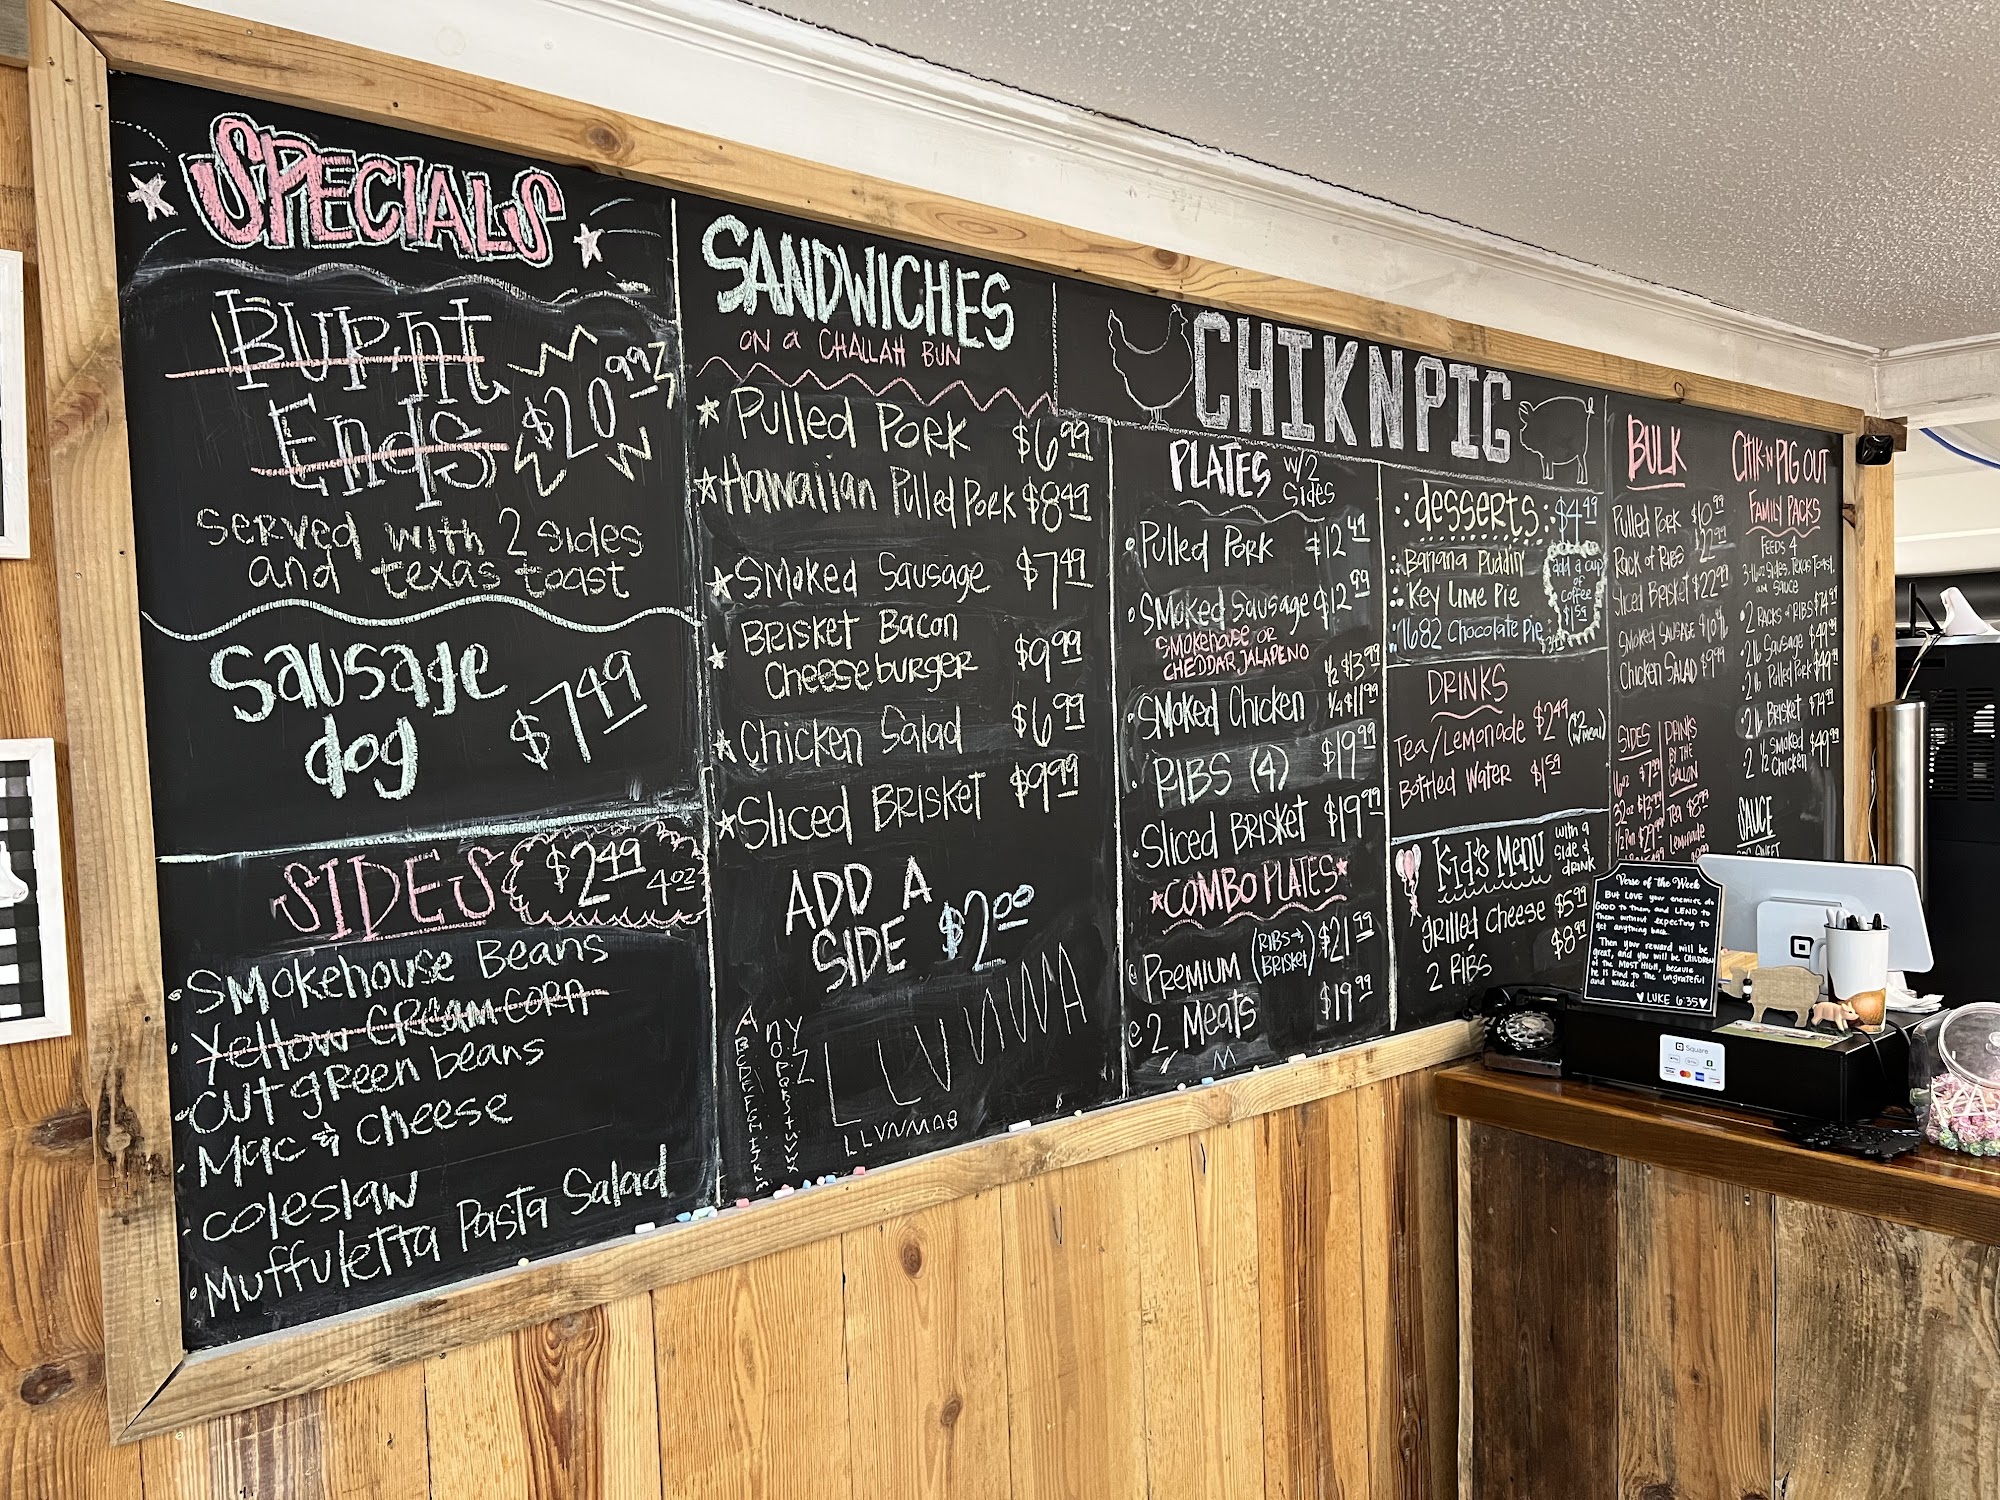 SPECIALS
Burnt
Ends
$20.99
served with 2 sides
and texas toast
Sausage
dog
$7.49
SIDES $2.49 4oz
Smokehouse Beans
Yellow Cream Corn
Cut green beans
Mac & cheese
coleslaw
Muffuletta Pasta Salad
SANDWICHES
ON a CHALLAH BUN
Pulled Pork $6.99
Hawaiian Pulled Pork $8.49
Smoked Sausage $7.49
Brisket Bacon
Cheeseburger $9.99
Chicken Salad $6.99
Sliced Brisket $9.99
ADD A
SIDE $2.00
CHIKNPIG
PLATES w/2
Sides
Pulled Pork $12.49
Smoked Sausage $12.99
Smokehouse or
Cheddar Jalapeno
Smoked Chicken 1/2 $13.99
1/4 $11.99
RIBS (4) $19.99
Sliced Brisket $19.99
COMBO PLATES
Premium (Ribs + Brisket) $21.99
2 Meats $19.99
desserts $4.99
Banana Puddin'
Key Lime Pie
1682 Chocolate Pie
add a cup
of
coffee
$1.59
DRINKS
Tea/Lemonade $2.49 ($2 w/meal)
Bottled Water $1.59
Kid's Menu with a
side &
drink
Grilled Cheese $5.99
2 Ribs $8.99
BULK
Pulled Pork $10.99
Rack of Ribs $22.99
Sliced Brisket $22.99
Smoked Sausage
Chicken Salad $9.99
SIDES
16oz $7.99
32oz $13.99
1/2 Pan $29.99
DRINKS
BY THE
GALLON
Tea $8.99
Lemonade
CHIK-N PIG OUT
FAMILY PACKS
FEEDS 4
3-16oz Sides, Texas Toast,
and Sauce
2 Racks of Ribs $74.99
2 lb Sausage $49.99
2 lb Pulled Pork $49.99
2 lb Brisket $74.99
2 1/2 Smoked
Chicken $49.99
SAUCE
Verse of the Week
But LOVE your enemies, do
GOOD to them, and LEND to
them without expecting to
get anything back.
Then your reward will be
great, and you will be CHILDREN
of the MOST HIGH, because
he is kind to the ungrateful
and wicked.
LUKE 6:35
Square